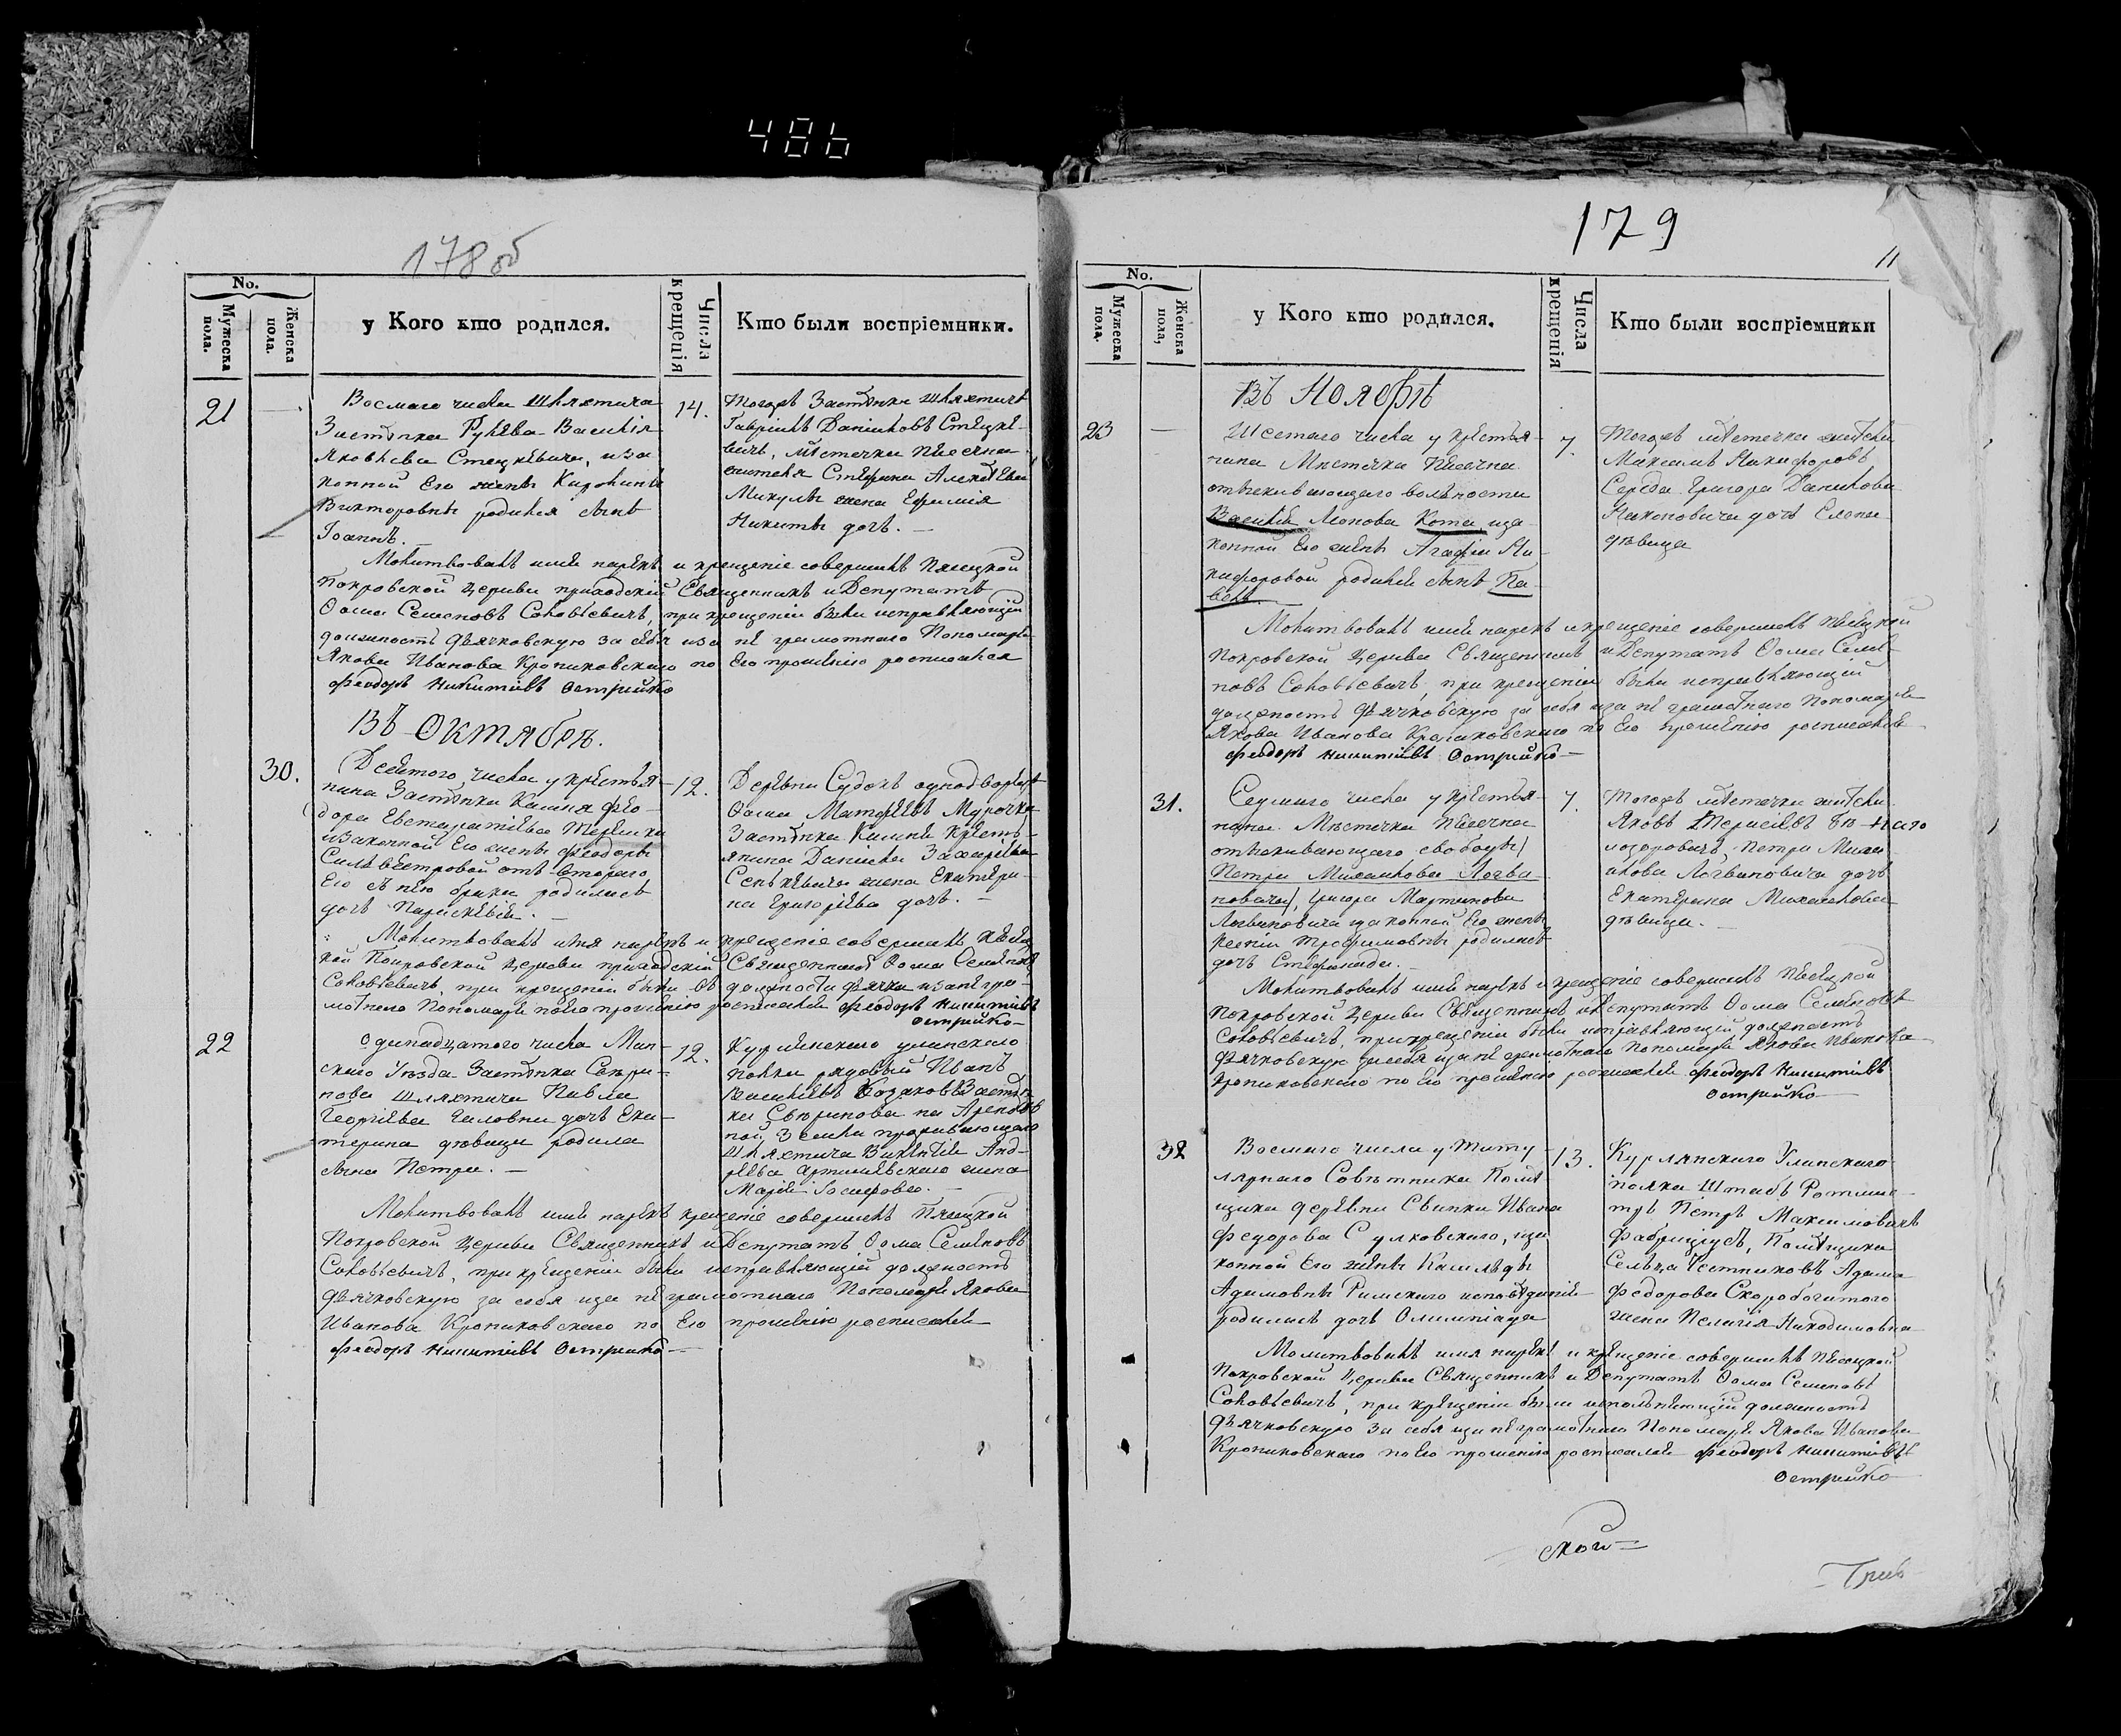 486
178 об
No.
Мужеска пола.
Женска пола.
у Кого кто родился.
Числа крещенія
Кто были воспріемники.
21
Восмаго числа Шляхтича
Застѣнка Рулева Василія
Яковлева Стецкевича, иза
конной Его жены Каролины
Викторовны родился сынъ
Іоаннъ.
14.
Тогожъ Застѣнка Шляхтичъ
Гавріилъ Даніиловъ Стецке-
вичъ, мѣстечка Песечна
жителя Стефана Алексѣева
Микулы жена Ефимія
Никиты дочь.
Молитвовалъ имя нарекъ и крещеніе совершилъ Пясецкой
Покровской Церкви приходскій Священникъ и Депутатъ
Ѳома Семеновъ Соловьевичъ, при крещеніи былъ исправляющій
должность Дьячковскую за себя иза не грамотнаго Пономаря
Якова Иванова Кропиковскаго по Его прошенію росписался
Феодоръ Никитинъ Острейко
Въ Октябрѣ.
30.
Десятого числа у крестья-
нина Застѣнка Камня Фео-
дора Евстаратіева Терешки
изаконной Его жены Феодоры
Сильвестровой отъ втораго
Его съ нею брака родилась
дочь Параскевія.
12.
Деревни Судохъ однодворецъ
Ѳома Матфеевъ Мурочка
Застѣнка Камня Кресть-
янина Данилы Захарѣева
Сенкевича жена Екатери-
на Григорьева дочь.
Молитвовалъ имя нарекъ и крещеніе совершилъ Песец
кой Покровской Церкви приходскій Священникъ Ѳома Семеновъ
Соловьевичъ, при крещеніи былъ въ должности Дьячка иза негра-
мотнаго Пономаря по его прошенію росписался Феодоръ Никитинъ
Острейко
22
Одинадцатого числа Мин-
скаго Уѣзда Застѣнка Севри-
нова Шляхтича Павла
Георгіева Гиловни дочь Ека-
терина дѣвица родила
сына Петра.
12.
Курлянскаго уланскаго
полка рядовый Иванъ
Василіевъ Козаковъ Застѣн
ка Севринова на Арендов
ной Земли проживающаго
Шляхтича Викентія Анд-
реева Артишевскаго жена
Марія Іосифова.
Молитвовалъ имя нарекъ крещеніе совершилъ Пясецкой
Покровской Церкви Священникъ и Депутатъ Ѳома Семеновъ
Соловьевичъ, при крещеніи былъ исправляющій должность
Дьячковскую за себя иза не грамотнаго Пономаря Якова
Иванова Кропиковскаго по Его прошенію росписался
Феодоръ Никитинъ Острейко
179
11
No.
Мужеска пола.
Женска пола,
у Кого кто родился.
Числа крещенія
Кто были воспріемники
Въ Ноябрѣ
23
Шестаго числа у крестья-
нина Мѣстечка Песечна
отыскивающаго вольности
Василія Леонова Кота, иза
конной Его жены Агафіи Ни-
кифоровой родился сынъ Па-
велъ.
7.
Тогожъ мѣстечка жители
Максимъ Никифоровъ
Середа Григора Данилова
дочь Елена
дѣвица
Молитвовалъ имя нарекъ и крещеніе совершилъ Песецкой
Покровской Церкви Священникъ и Депутатъ Ѳома Семе-
новъ Соловьевичъ, при крещеніи былъ исправляющій
должность Дьячковскую за себя иза не грамотнаго Пономаря
Якова Иванова Кропиковскаго по Его прошенію росписался
Феодоръ Никитинъ Острейко
31.
Седмаго числа у крестья-
нина Мѣстечка Песечна
отыскивающаго свободы
Петра Михайлова Логви
новича, Григора Мартинова
Логвиновича законной Его жены
Ксеніи Трофимовны родилась
дочь Стефанида.
7.
Тогожъ мѣстечка жители
Яковъ
Петра Миха
йлова Логвиновича дочь
Екатерина Михайлова
дѣвица.
Молитвовалъ имя нарекъ и крещеніе совершилъ Песецкой
Покровской Церкви Священникъ и Депутатъ Ѳома Семеновъ
Соловьевичъ, при крещеніи былъ исправляющій должность
Дьячковскую за себя иза не грамотнаго Пономаря Якова Иванова
Кропиковскаго по Его прошенію росписался Феодоръ Никитинъ
Острейко
32
Восмаго числа у Титу-
лярнаго Совѣтника Помѣ-
щика деревни Свинки Ивана
Федорова Сулковскаго, иза
конной Его жены Касильды
Адамовны Римскаго исповѣданія
родилась дочь Олимпіада
13.
Курлянскаго Уланскаго
полка Штабъ Ротмис-
тръ Петръ Максимовичъ
Фабриціусъ, Помѣщика
Сельца Чешниковъ Адама
Федорова Скоробогатого
жена Пелагія Никодимовна
Молитвовалъ имя нарекъ и крещеніе совершилъ Песецкой
Покровской Церкви Священникъ и Депутатъ Ѳома Семеновъ
Соловьевичъ, при крещеніи былъ исполняющій должность
Дьячковскую за себя иза не грамотнаго Пономаря Якова Иванова
Кропиковскаго по Его прошенію росписался Феодоръ Никитинъ
Острейко
ской